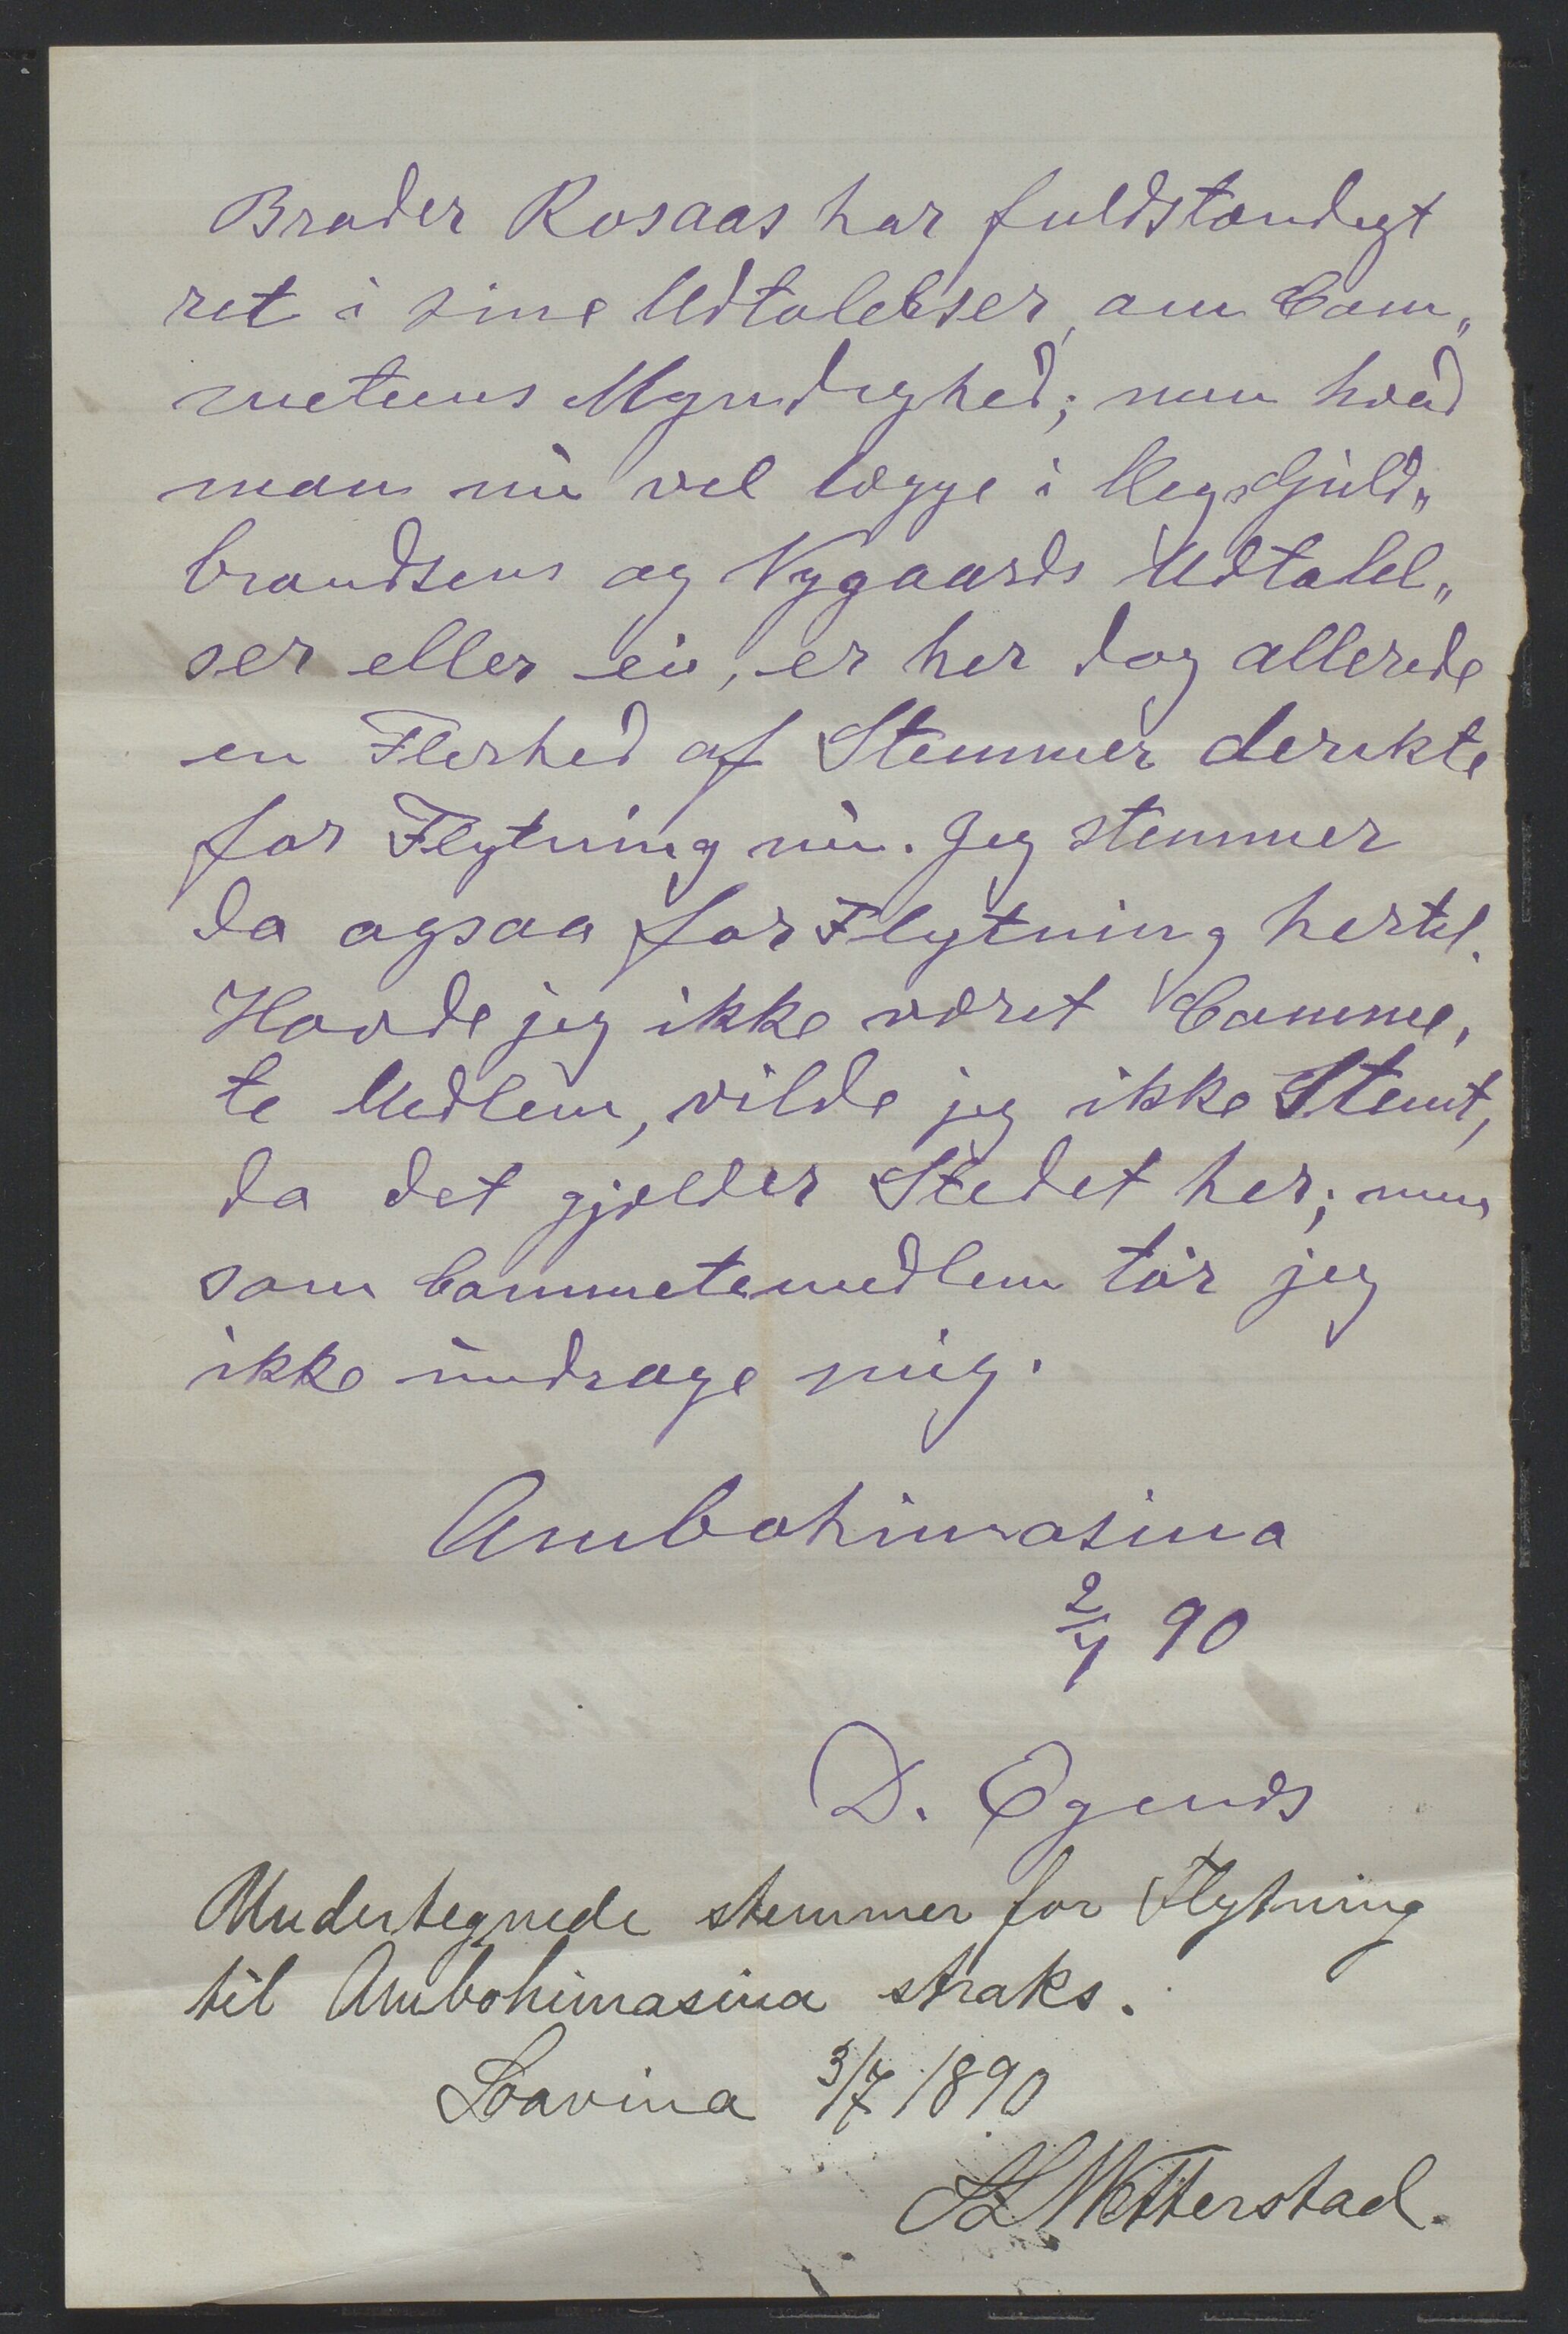 Broder Rosaas har fuldstændigt
ret i sine Udtalelser, om Com„
meteens Myndighed; men hvad
man nu vel lægge i Meg. Guld„
brandsens og Nygaards Udtalel„
ser eller ei, er her dog allerede
en Flerhed af Stemmer derekte
for Flytning nu. Jeg stemmer
da ogsaa for Flytning hertil.
Havde jeg ikke været Comme,
te Medlem, vilde jeg ikke Stemt,
da det gjælder Stedet her; men
som Commetemedlem tør jeg
ikke undrage mig.
Ambohimasina
2/7 90
D. Ogends
Undertegnede stemmer for Flytning
til Ambohimasina straks.
Soavina 3/7 1890
Wetterstad.